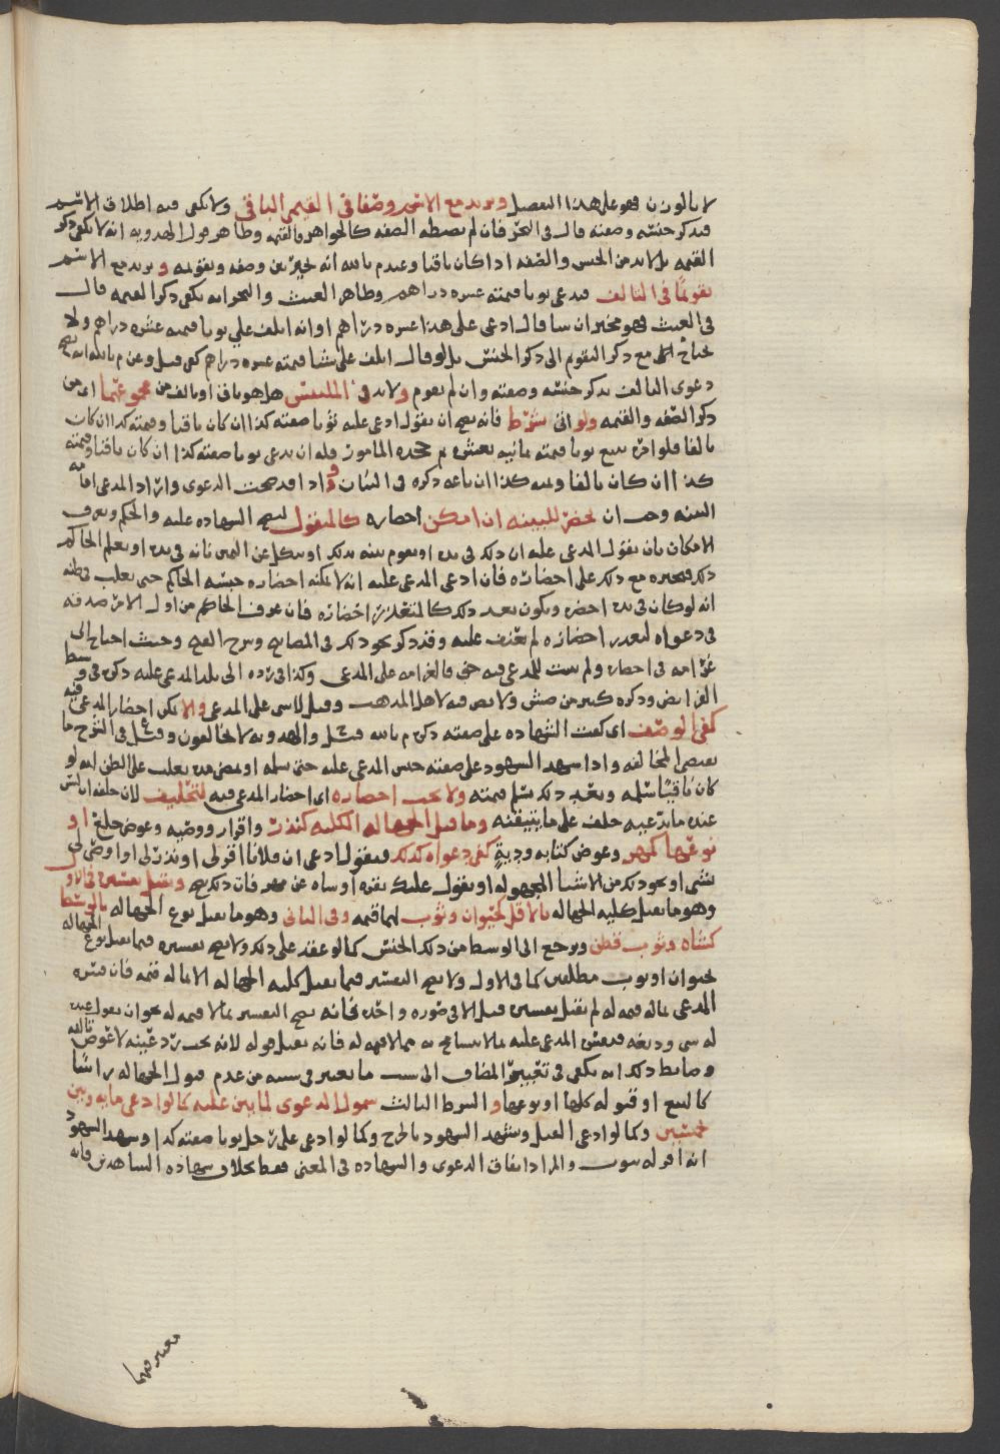 لا بالوزن فهو على هذا التفصيل ويزيد مع الاسم وصفا في القيمي الباقي ولا يكفي فيه اطلاق الاسم
فيذكر جنسه وصفته قال في البحر فان لم يضبطه الصفه كالجواهر فالقيمه وظاهر قول الهدويه انه لا يكفي ذكر
القيمه بل لا بد من الجنس والصفه اذا كان باقيا وعندم بالله انه يخير بين وصفه وتقويمه و يزيد مع الاسم
تقويما في التالف فيدعي ثوبا قيمته عشره دراهم وظاهر الغيث والبحر انه يكفي ذكر القيمه قال
في الغيث فهو مخير ان شا قال ادعي على هذا عشره دراهم او انه اتلف علي ثوبا قيمته عشره دراهم ولا
يحتاج مع ذكر التقويم الى ذكر الجنس بل لو قال اتلف علي شيا قيمته عشره دراهم كفى قيل وعن م بالله انه يصح
دعوى التالف بذكر جنسه وصفته وان لم يقوم ولا بد في الملتبس هل هو باق او تالف من مجموعهما اي من
ذكر الصفه والقيمه ولو اتى بشرط فانه يصح ان يقول ادعي عليه ثوبا صفته كذا ان كان باقيا وقيمته كذا ان كان
تالفا فلو امره ببيع ثوبا قيمته ثمانيه بعشره ثم جحده المامور فله ان يدعي ثوبا صفته كذا ان كان باقيا وقيمته
كذا ان كان تالفا وثمنه كذا ان باعه ذكره في البيان و اذا قد صحت الدعوى واراد المدعي اقامه
البينه وجب ان يحضر للبينه ان امكن احضاره كالمنقول لتصح الشهاده عليه والحكم ويعرف
الامكان بان يقول المدعى عليه ان ذلك في يده او يقوم بينه بذلك او ينكل عن اليمين انه في يده او يعلم الحاكم
ذلك فيجبره مع ذلك على احضاره فان ادعى المدعى عليه انه لا يمكنه احضاره حبسه الحاكم حتى يغلب في ظنه
انه لو كان في يده احضره ويكون بعد ذلك كالمتعذر احضاره فان عرف الحاكم من اول الامر صدقه
في دعواه لتعذر احضاره لم يعنف عليه وقد ذكر نحو ذلك في المصابيح وشرح الفتح وحيث احتاج الى
غرامه في احضاره ولم يثبت للمدعي فيه حق فالغرامه على المدعي وكذا في رده الى بلد المدعى عليه ذكره في وسيط
الفرايض وذكره حسن ولا نص فيه لاهل المذهب وقيل لا شي على المدعي والا يمكن احضار المدعى فيه
كفى الوصف اي كفت الشهاده على صفته ذكره م بالله والهدويه لا يخالفون وقيل في الشرح ما
يقتضي المخالفه واذا شهد الشهود على صفته حبس المدعى عليه حتى يسلمه او يمضي مده يغلب على الظن انه لو
كان باقيا سلمه وبعد ذلك يسلم قيمته ولا يجب احضاره اي احضار المدعى فيه لتحليف لان حلفه اذا ليس
عنده ما يدعيه حلف على ما يتيقنه وما قبل الجهاله الكليه كنذر واقرار ووصيه وعوض خلع او
نوعها كمهر وعوض كتابه وديةٍ كفى دعواه كذلك فيقول ادعي ان فلانا اقر لي او نذر لي او اوصى لي
بشي او نحو ذلك من الاشيا المجهوله او يقول عليك بقره او شاه عن مهر فان ذلك يصح ويقبل تفسيره في الاول
وهو ما يقبل كليه الجهاله بالاقل كحيوان وثوب لهما قيمه وفي الثاني وهو ما يقبل نوع الجهاله بالوسط
كشاه وثوب قطن ويرجع الى الوسط من ذلك الجنس كما لو عقد على ذلك ولا يصح تفسيره فيما يقبل نوع الجهاله
بحيوان او ثوب مطلقين كما في الاول ولا يصح التفسير فيما يقبل كليه الجهاله الا بما له قيمه فان فسره
المدعي بما لا قيمه له لم يقبل تفسيره قيل الا في صوره واحده فانه يصح التفسير بما لا قيمه له نحو ان يقول عنده
له شي وديعه فيفسره المدعى عليه بما لا يتسامح به مما لا قيمه له فانه يقبل قوله لانه يجب رد عينه لا عوض تالفه
وضابط ذلك انه يكفي في تعيين المضاف الى سبب ما يعتبر في سببه من عدم قبول الجهاله راسا
كالبيع او قبوله كلها او نوعها و الشرط الثالث شمول الدعوى لما بين عليه كما لو ادعى مايه وبين
خمسين وكما لو ادعى القتل وشهد الشهود بالجرح وكما لو ادعى على رجل ثوبا صفته كذا وشهد الشهود
انه اقر له بثوب والمراد اتفاق الدعوى والشهاده في المعنى فقط بخلاف شهاده الشاهدين فانه
يعتبر فيها